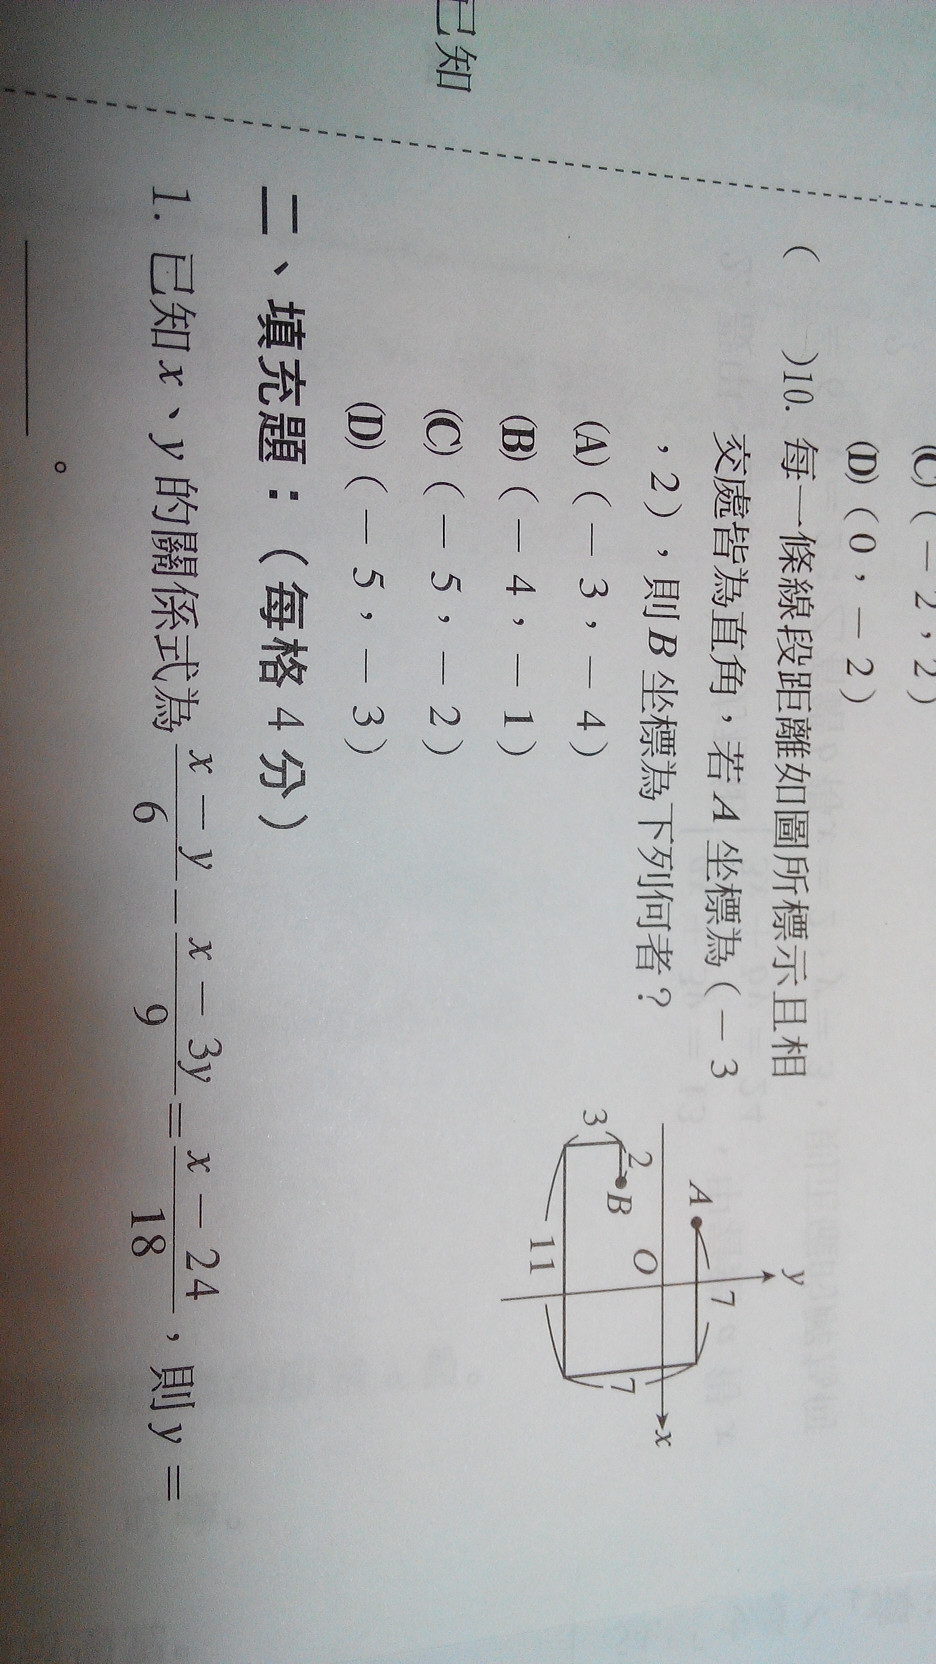 已知
(C)(－2，2)
(D)(0，－2)
(　)10. 每一條線段距離如圖所標示且相
交處皆為直角，若A坐標為(－3
，2)，則B坐標為下列何者？
(A)(－3，－4)
(B)(－4，－1)
(C)(－5，－2)
(D)(－5，－3)
y
A
7
O
x
2
B
3
7
11
二、填充題：(每格4分)
1. 已知x、y的關係式為 (x－y)/6－(x－3y)/9＝(x－24)/18，則y＝
＿＿＿＿。